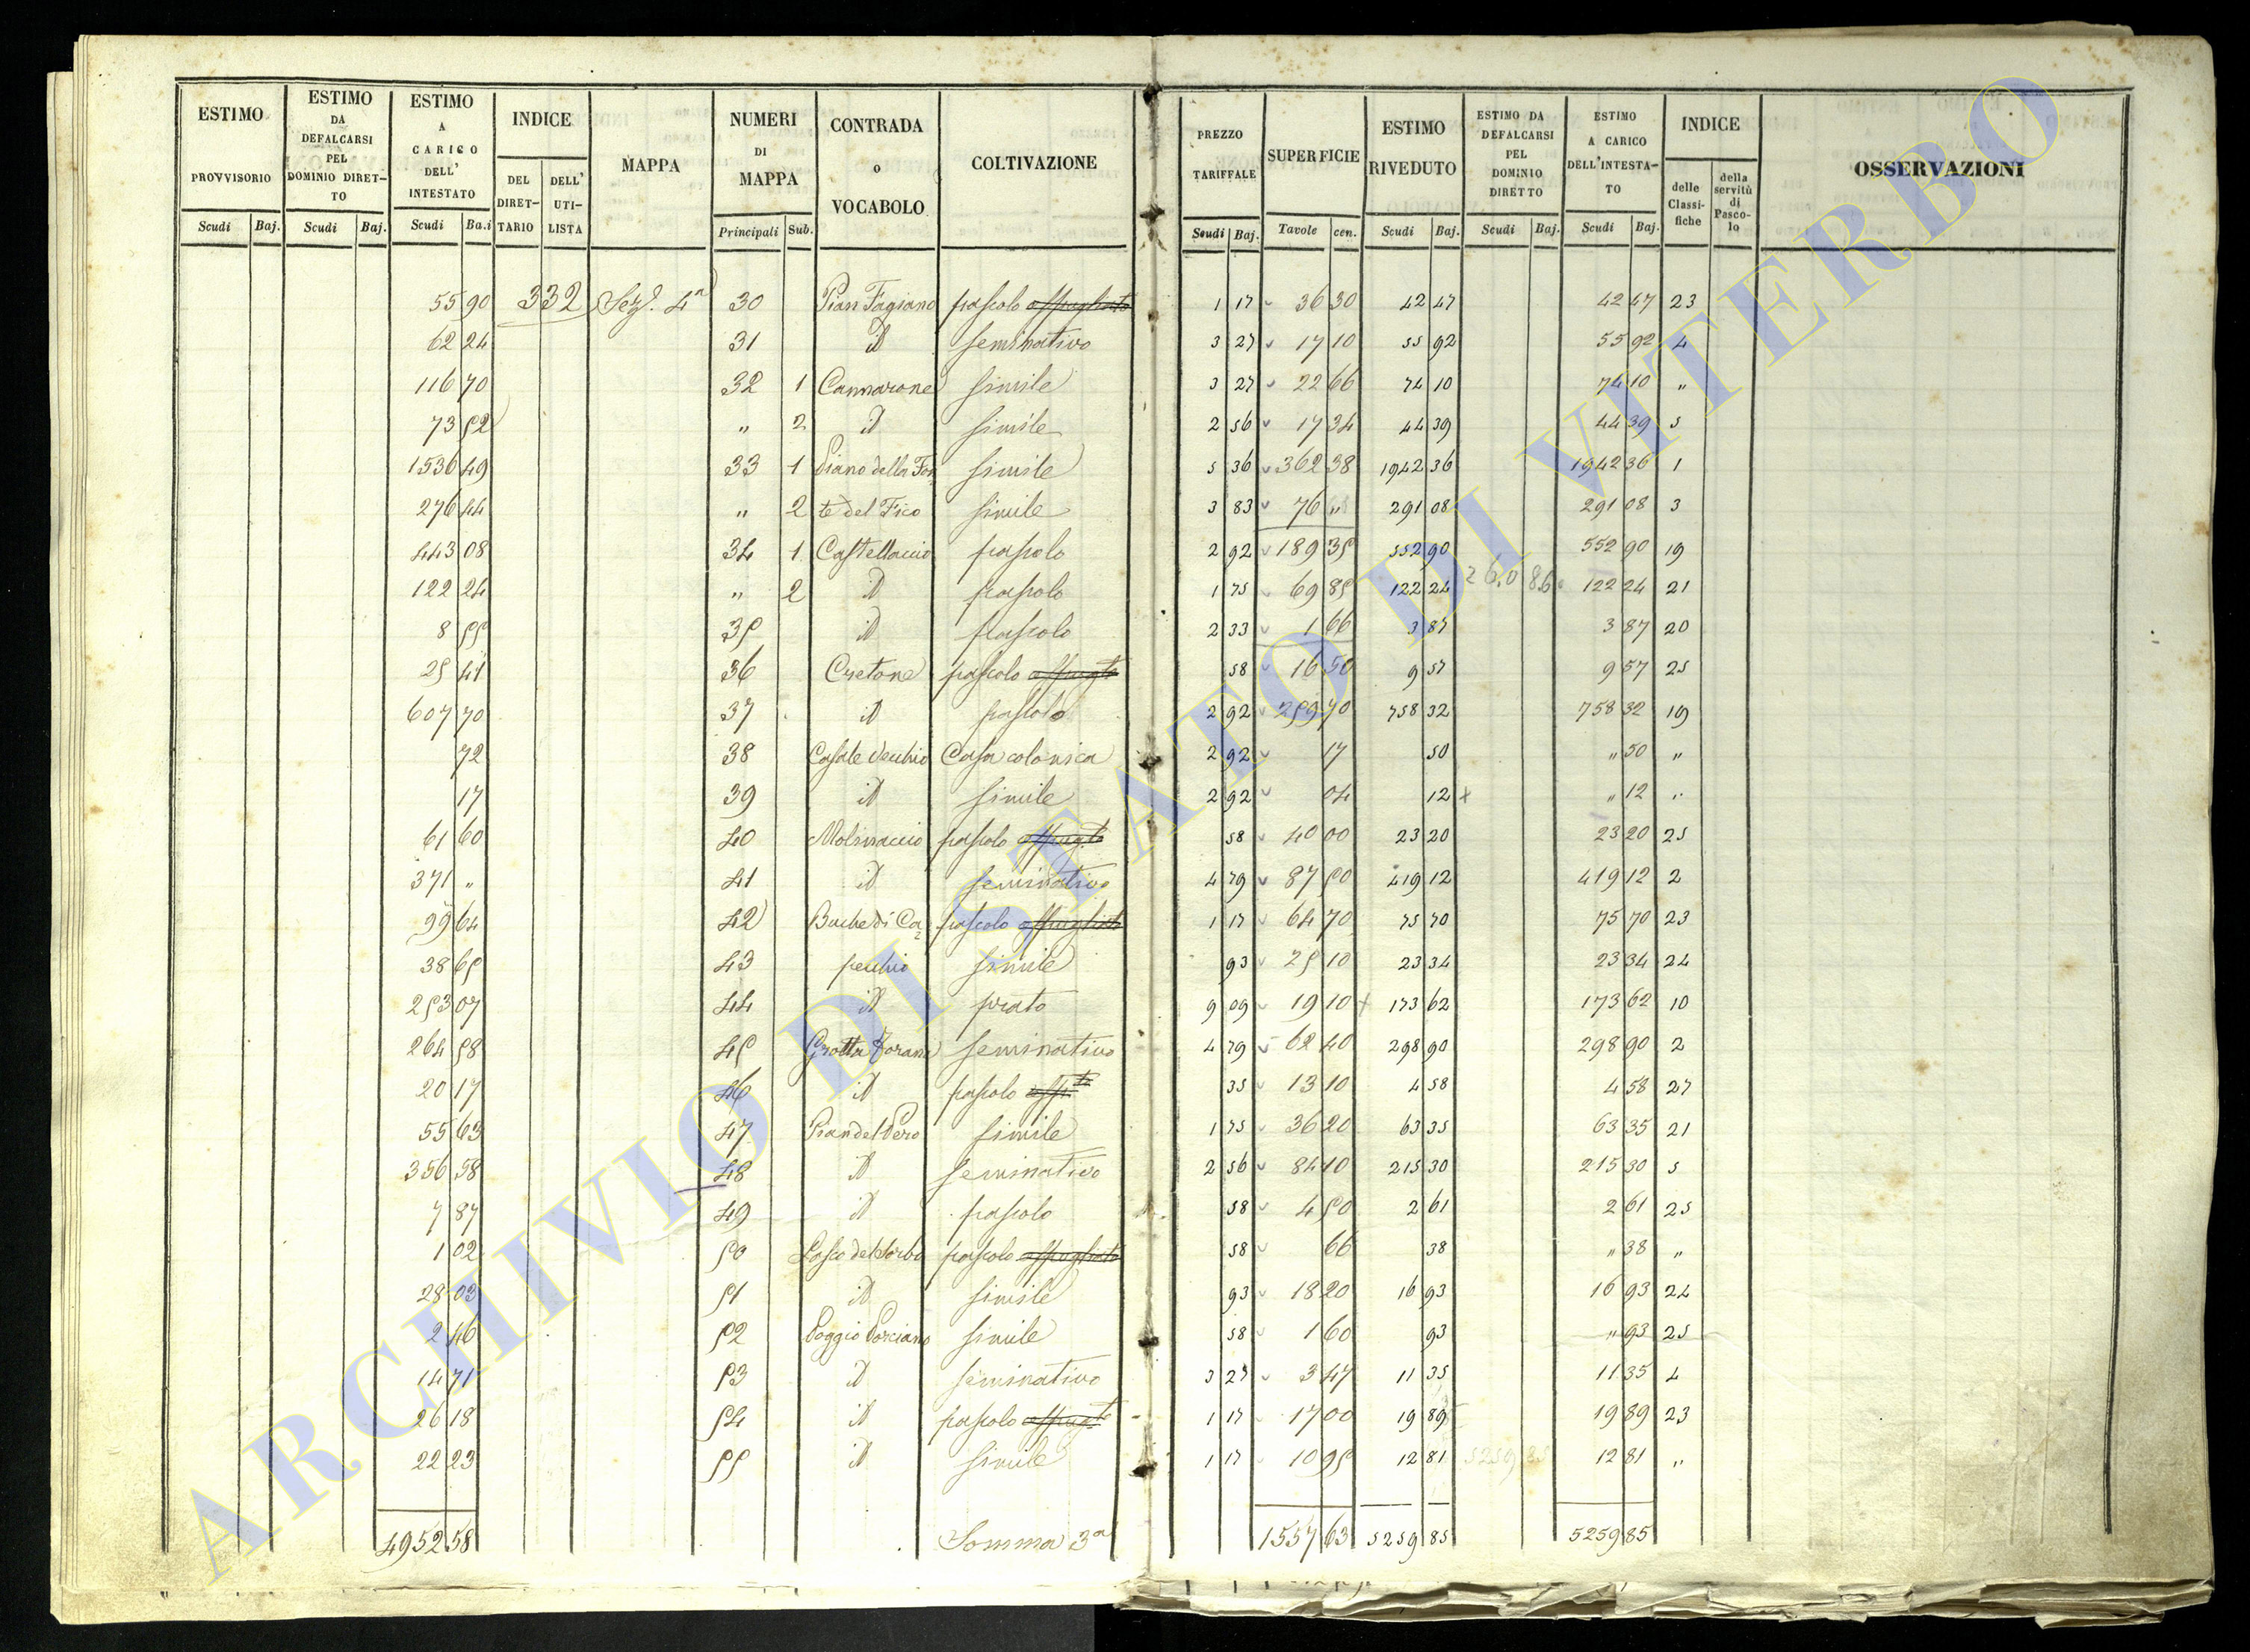 ESTIMO PROVVISORIO | ESTIMO DA DEFALCARSI PEL DOMINIO DIRETTO | ESTIMO A CARICO DELL' INTESTATO | INDICE | MAPPA | NUMERI DI MAPPA | CONTRADA o VOCABOLO | COLTIVAZIONE | PREZZO TARIFFALE | SUPERFICIE | ESTIMO RIVEDUTO | ESTIMO DA DEFALCARSI PEL DOMINIO DIRETTO | ESTIMO A CARICO DELL'INTESTATO | INDICE | OSSERVAZIONI
DEL DIRETTARIO | DELL' UTILISTA | delle Classifiche | della servitù di Pascolo
Scudi | Baj. | Scudi | Baj. | Scudi | Ba.i | Principali | Sub. | Scudi | Baj. | Tavole | cen. | Scudi | Baj. | Scudi | Baj. | Scudi | Baj.
55 90 332 Sez. 4ª 30 Pian Fagiano pascolo 1 17 36 30 42 47 42 47 23
62 24 31 id seminativo 3 27 17 10 55 92 55 92 4
116 70 32 1 Cannarone simile 3 27 22 66 74 10 74 10 "
73 52 " 2 id simile 2 56 17 34 44 39 44 39 5
1536 49 33 1 Piano della Fon simile 5 36 362 38 1942 36 1942 36 1
276 44 " 2 te del Fico simile 3 83 76 " 291 08 291 08 3
443 08 34 1 Castellaccio pascolo 2 92 189 35 552 90 552 90 19
122 24 " 2 id pascolo 1 75 69 85 122 24 260 86 122 24 21
8 55 35 id pascolo 2 33 1 66 3 87 3 87 20
25 41 36 Cretone pascolo 58 16 50 9 57 9 57 25
607 70 37 id pascolo 2 92 259 70 758 32 758 32 19
72 38 Casale Vecchio Casa colonica 2 92 17 50 " 50 "
17 39 id simile 2 92 04 12 " 12 "
61 60 40 Molinaccio pascolo 58 40 00 23 20 23 20 25
371 " 41 id seminativo 4 79 87 50 419 12 419 12 2
99 64 42 Buche di Ca pascolo 1 17 64 70 75 70 75 70 23
38 65 43 pecchio simile 93 25 10 23 34 23 34 24
253 07 44 id prato 9 09 19 10 173 62 173 62 10
264 58 45 Grotta seminativo 4 79 62 40 298 90 298 90 2
20 17 46 id pascolo 35 13 10 4 58 4 58 27
55 63 47 Pian del Pero simile 1 75 36 20 63 35 63 35 21
356 58 48 id seminativo 2 56 84 10 215 30 215 30 5
7 87 49 id pascolo 58 4 50 2 61 2 61 25
1 02 50 pascolo 58 66 38 " 38 "
28 03 51 id simile 93 18 20 16 93 16 93 24
2 46 52 Poggio Porciano simile 58 1 60 93 " 93 25
14 71 53 id seminativo 3 27 3 47 11 35 11 35 4
26 18 54 id pascolo 1 17 17 00 19 89 19 89 23
22 23 55 id simile 1 17 10 95 12 81 5259 85 12 81 "
4952 58 Somma 3ª 1557 63 5259 85 5259 85
ARCHIVIO DI STATO DI VITERBO